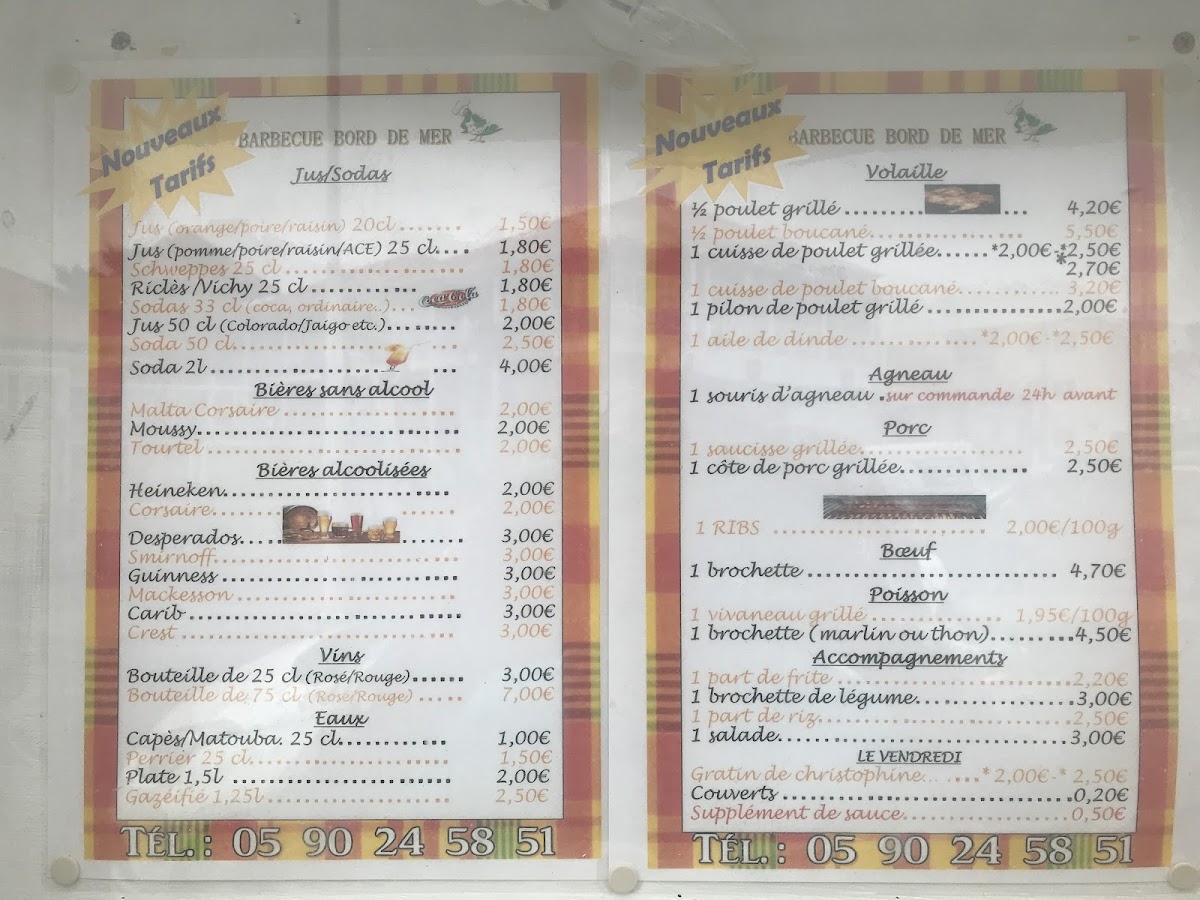 Nouveaux
Tarifs
BARBECUE BORD DE MER
Jus/Sodas
Jus (orange/poire/raisin) 20cl ....... 1,50€
Jus (pomme/poire/raisin/ACE) 25 cl.... 1,80€
Schweppes 25 cl .................. 1,80€
Riclès /Vichy 25 cl ............ 1,80€
coca cola
Sodas 33 cl (coca, ordinaire..)... 1,80€
Jus 50 cl (Colorado/Jaigo etc.)....... 2,00€
Soda 50 cl.................. 2,50€
Soda 2l ..................... 4,00€
Bières sans alcool
Malta Corsaire ................. 2,00€
Moussy......................... 2,00€
Tourtel ........................ 2,00€
Bières alcoolisées
Heineken...................... 2,00€
Corsaire........................ 2,00€
Desperados..... ....... 3,00€
Smirnoff........................ 3,00€
Guinness ....................... 3,00€
Mackesson ..................... 3,00€
Carib .......................... 3,00€
Crest ........................... 3,00€
Vins
Bouteille de 25 cl (Rosé/Rouge)...... 3,00€
Bouteille de 75 cl (Rosé/Rouge) ..... 7,00€
Eaux
Capès/Matouba. 25 cl........... 1,00€
Perrier 25 cl.................... 1,50€
Plate 1,5l ...................... 2,00€
Gazéifié 1,25l .................. 2,50€
TÉL. : 05 90 24 58 51
Nouveaux
Tarifs
BARBECUE BORD DE MER
Volaille
½ poulet grillé ........ ... 4,20€
½ poulet boucané................ 5,50€
1 cuisse de poulet grillée......*2,00€-*2,50€
*2,70€
1 cuisse de poulet boucané............ 3,20€
1 pilon de poulet grillé ..............2,00€
1 aile de dinde ............. *2,00€-*2,50€
Agneau
1 souris d'agneau .sur commande 24h avant
Porc
1 saucisse grillée................. 2,50€
1 côte de porc grillée............. 2,50€
1 RIBS ...................... 2,00€/100g
Bœuf
1 brochette .......................... 4,70€
Poisson
1 vivaneau grillé .............. 1,95€/100g
1 brochette (marlin ou thon)........4,50€
Accompagnements
1 part de frite ........................2,20€
1 brochette de légume................3,00€
1 part de riz..........................2,50€
1 salade..............................3,00€
LE VENDREDI
Gratin de christophine... ....*2,00€-*2,50€
Couverts .............................0,20€
Supplément de sauce.................0,50€
TÉL. : 05 90 24 58 51